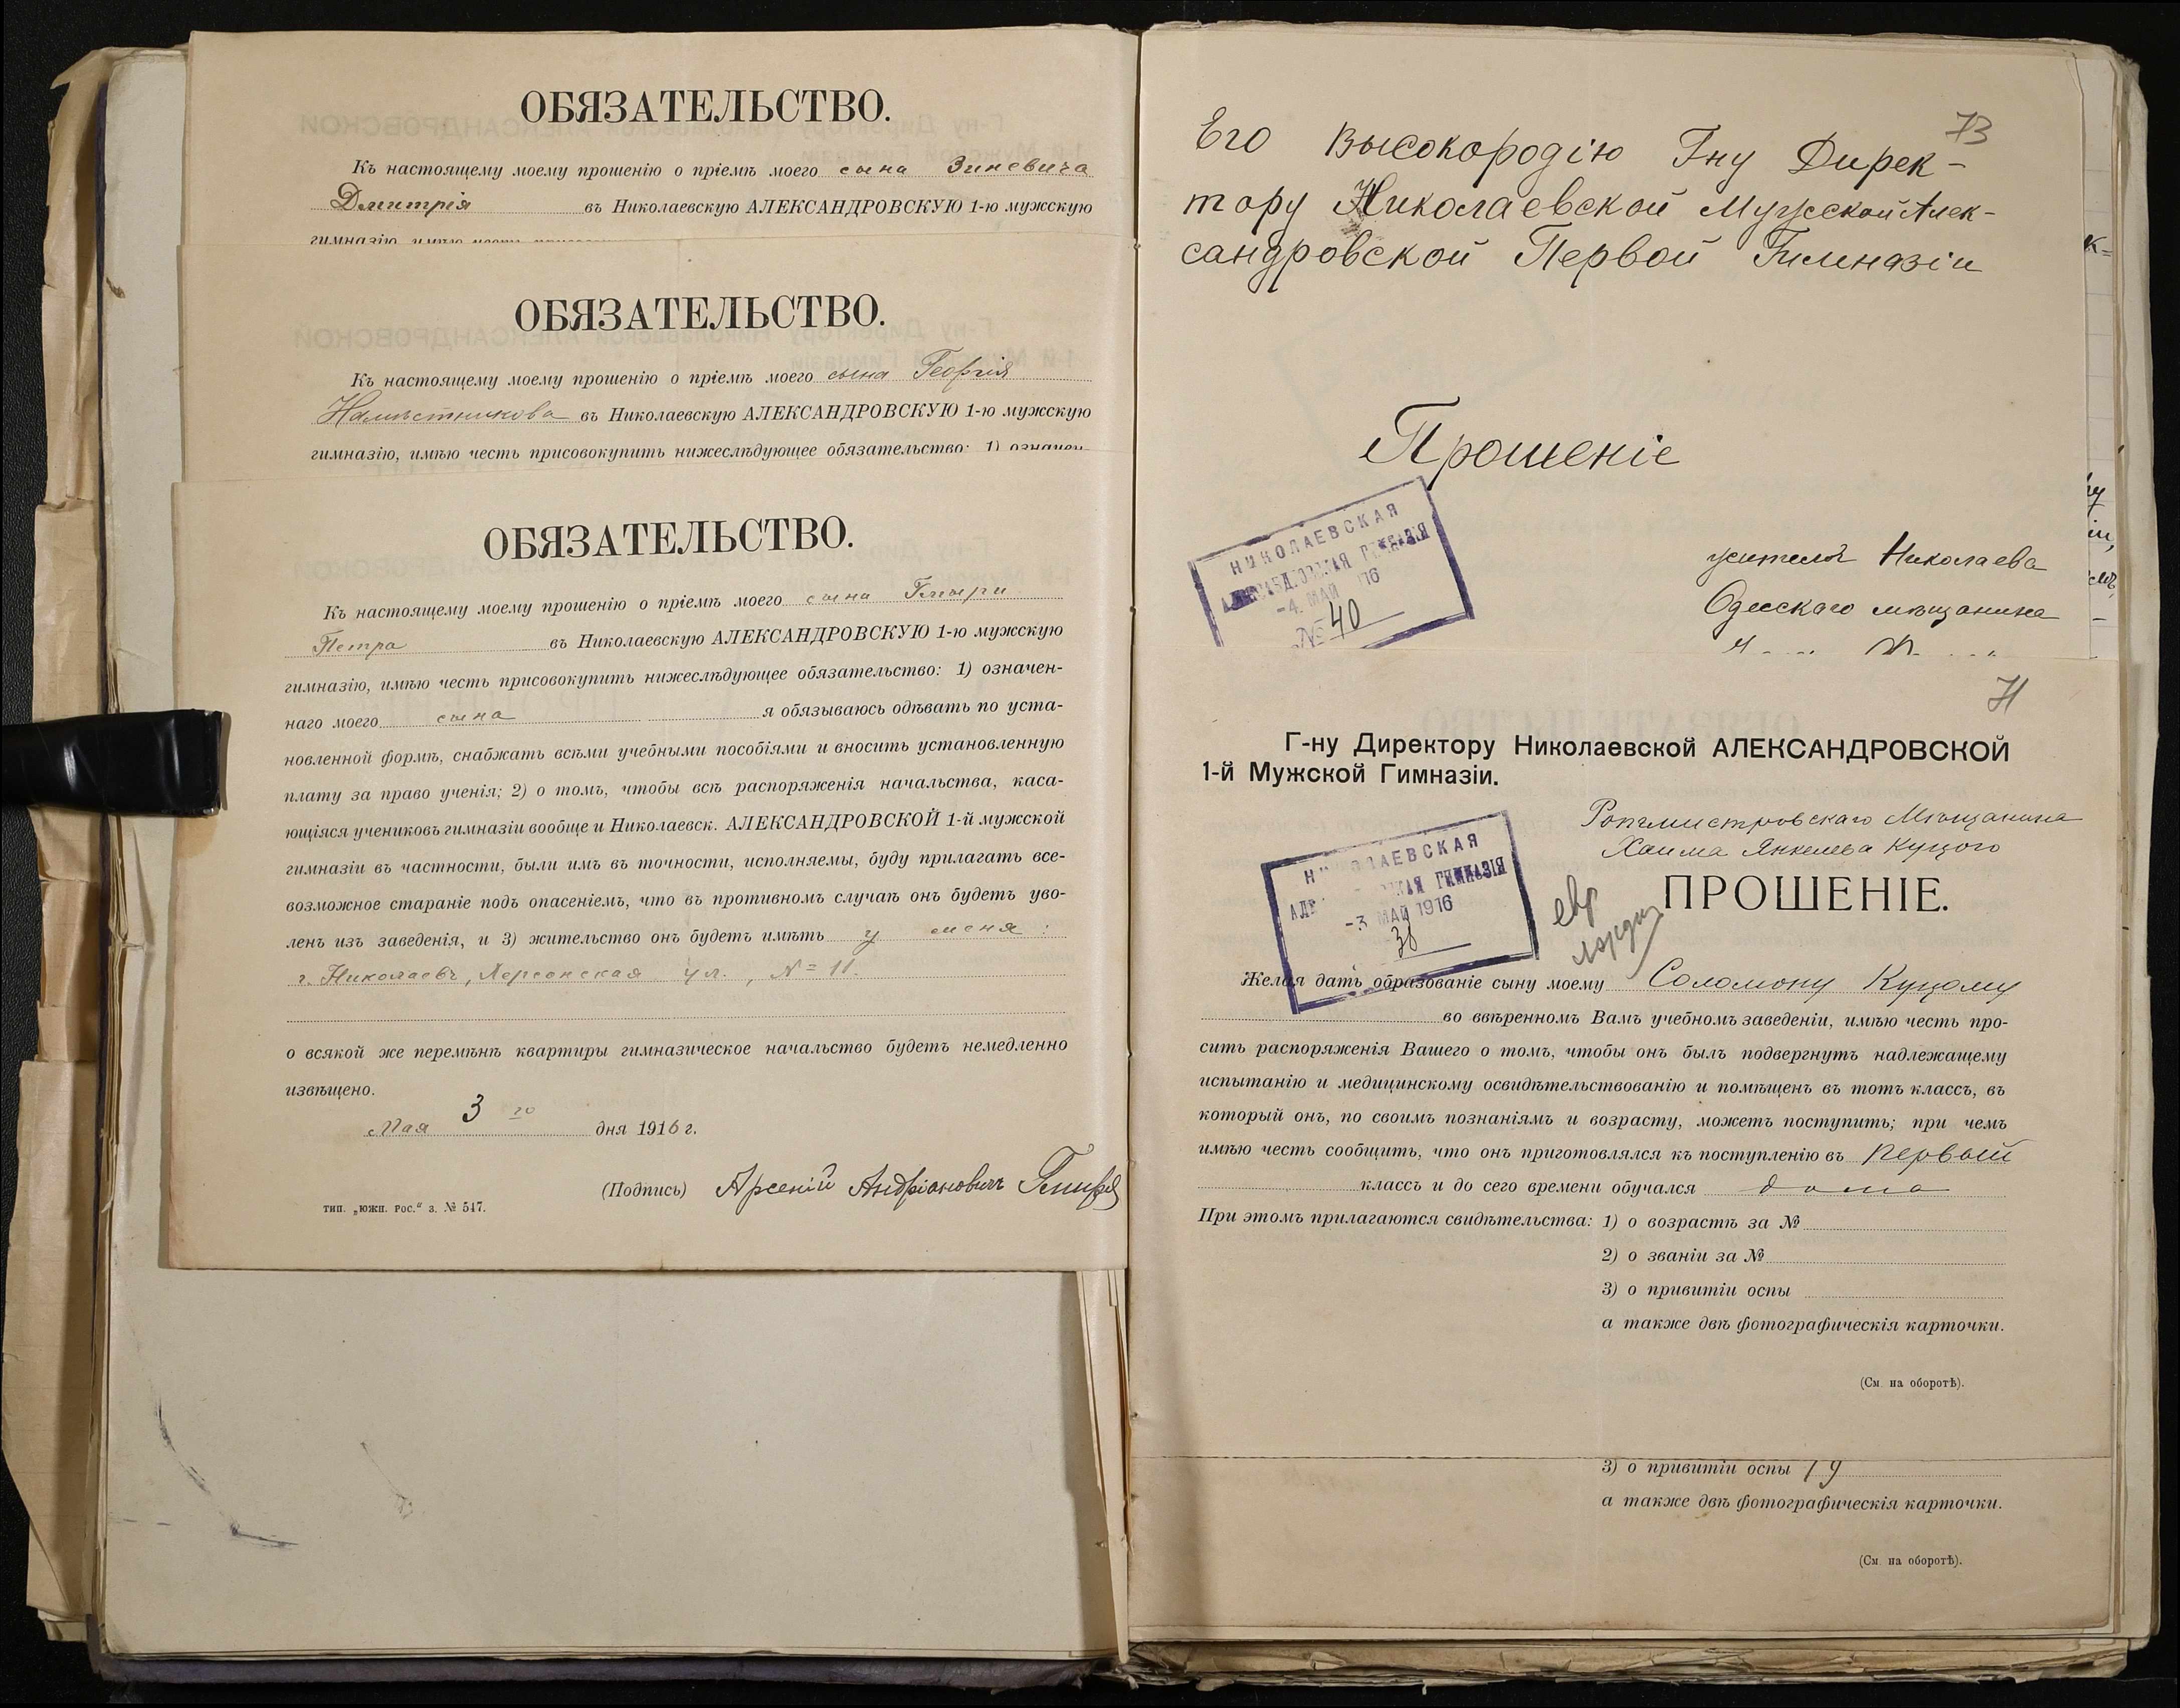 ОБЯЗАТЕЛЬСТВО.
Къ настоящему моему прошенію о пріемѣ моего сына Зиневича
Дмитрія въ Николаевскую АЛЕКСАНДРОВСКУЮ 1-ю мужскую
гимназію, имѣю честь
ОБЯЗАТЕЛЬСТВО.
Къ настоящему моему прошенію о пріемѣ моего сына Георгія
Намѣстникова въ Николаевскую АЛЕКСАНДРОВСКУЮ 1-ю мужскую
гимназію, имѣю честь присовокупить нижеслѣдующее обязательство: 1) означен-
ОБЯЗАТЕЛЬСТВО.
Къ настоящему моему прошенію о пріемѣ моего сына Гмыри
Петра въ Николаевскую АЛЕКСАНДРОВСКУЮ 1-ю мужскую
гимназію, имѣю честь присовокупить нижеслѣдующее обязательство: 1) означен-
наго моего сына я обязываюсь одѣвать по уста-
новленной формѣ, снабжать всѣми учебными пособіями и вносить установленную
плату за право ученія; 2) о томъ, чтобы всѣ распоряженія начальства, каса-
ющіяся учениковъ гимназіи вообще и Николаевск. АЛЕКСАНДРОВСКОЙ 1-й мужской
гимназіи въ частности, были имъ въ точности, исполняемы, буду прилагать все-
возможное стараніе подъ опасеніемъ, что въ противномъ случаѣ онъ будетъ уво-
ленъ изъ заведенія, и 3) жительство онъ будетъ имѣть у меня:
г. Николаевъ, Херсонская ул., №=11.
о всякой же перемѣнѣ квартиры гимназическое начальство будетъ немедленно
извѣщено.
Мая 3 го дня 1916 г.
(Подпись) Арсеній Андріановичъ Гмиря
тип. „южн. рос." з. № 547.
73
Его Высокородію Гну Дирек-
тору Николаевской Мужской Алек-
сандровской Первой Гимназіи
Прошеніе
НИКОЛАЕВСКАЯ
АЛЕКСАНДРОВСКАЯ ГИМНАЗІЯ
-4. МАЙ 1916
№ 40
жителя Николаева
Одесскаго мѣщанина
71
Г-ну Директору Николаевской АЛЕКСАНДРОВСКОЙ
1-й Мужской Гимназіи.
Ротмистровскаго Мѣщанина
Хаима Янкелева Куцого
НИКОЛАЕВСКАЯ
АЛЕКСАНДРОВСКАЯ ГИМНАЗІЯ
-3 МАЙ 1916
38
евр
ПРОШЕНІЕ.
Желая дать образованіе сыну моему Соломону Куцому
во ввѣренномъ Вамъ учебномъ заведеніи, имѣю честь про-
сить распоряженія Вашего о томъ, чтобы онъ былъ подвергнутъ надлежащему
испытанію и медицинскому освидѣтельствованію и помѣщенъ въ тотъ классъ, въ
который онъ, по своимъ познаніямъ и возрасту, можетъ поступить; при чемъ
имѣю честь сообщить, что онъ приготовлялся къ поступленію въ первый
классъ и до сего времени обучался дома
При этомъ прилагаются свидѣтельства: 1) о возрастѣ за №
2) о званіи за №
3) о привитіи оспы
а также двѣ фотографическія карточки.
(См. на оборотѣ).
3) о привитіи оспы
а также двѣ фотографическія карточки.
(См. на оборотѣ).